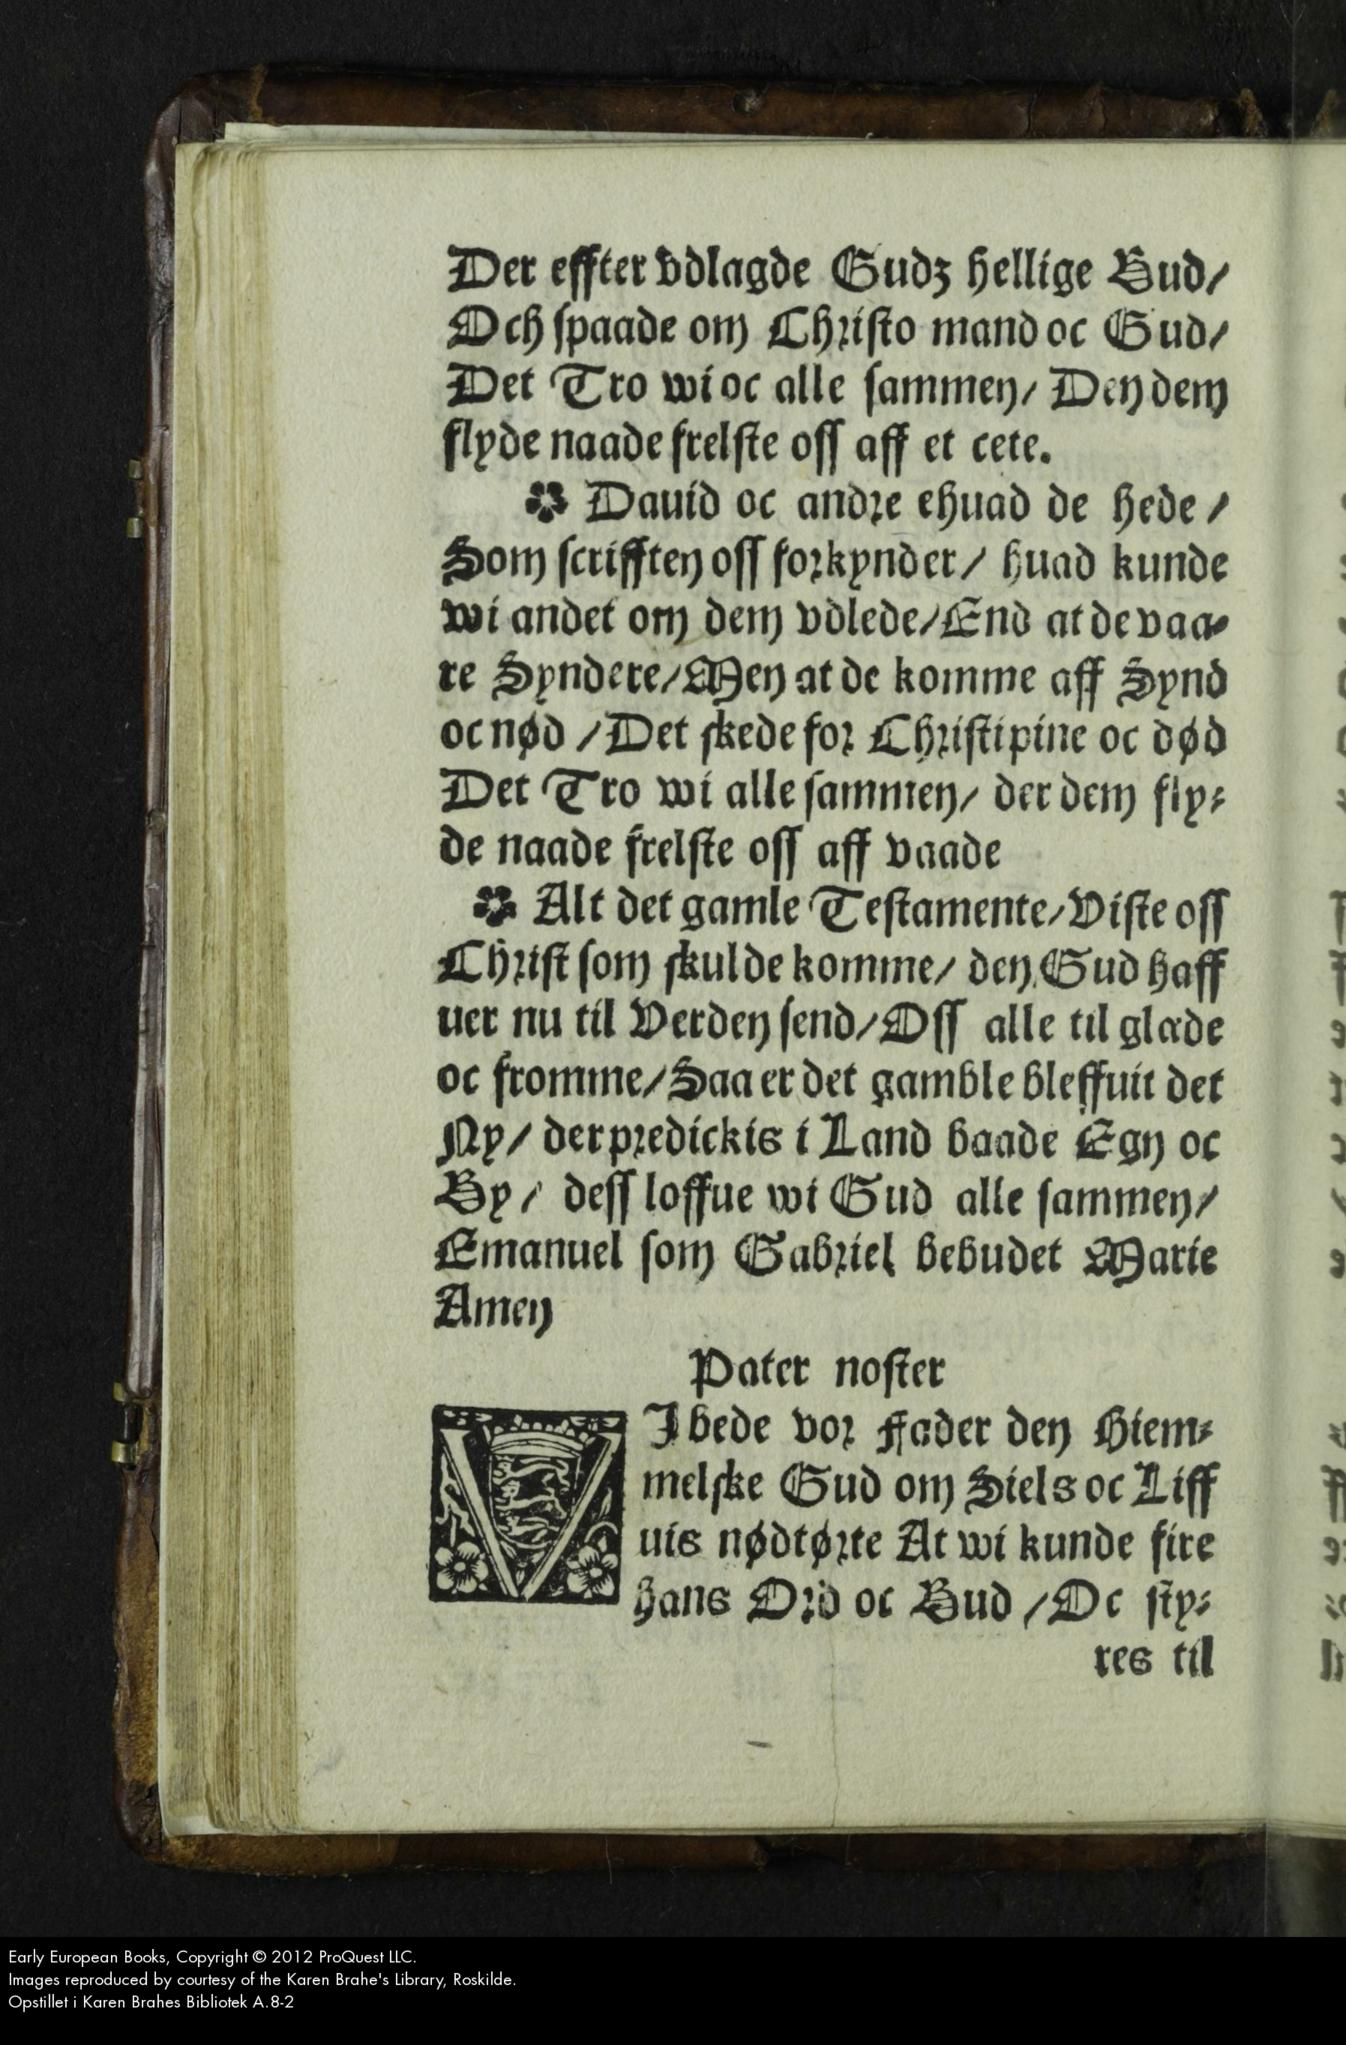 Der effter vdlagde Gudz hellige Bud/
Och spaade om Christo mand oc Gud/
Det Tro wi oc alle sammen/ Den dem
flyde naade frelste oss aff et cete.
✿ Dauid oc andre ehuad de hede /
Som scrifften oss forkynder/ huad kunde
wi andet om dem vdlede/End at de vaa-
re Syndere/Men at de komme aff Synd
oc nød /Det skede for Christi pine oc død
Det Tro wi alle sammen/ der dem fly-
de naade frelste oss aff vaade
✿ Alt det gamle Testamente/Viste oss
Christ som skulde komme/ den Gud haff
uer nu til Verden send/Oss alle til glæde
oc fromme/Saa er det gamble bleffuit det
Ny/ der predickis i Land baade Egn oc
By/ dess loffue wi Gud alle sammen/
Emanuel som Gabriel bebudet Marie
Amen
Pater noster
VJ bede vor Fader den Hiem-
melske Gud om Siels oc Liff
uis nødtørte At wi kunde fire
hans Ord oc Bud /Oc sty-
res til
Early European Books, Copyright © 2012 ProQuest LLC.
Images reproduced by courtesy of the Karen Brahe's Library, Roskilde.
Opstillet i Karen Brahes Bibliotek A.8-2